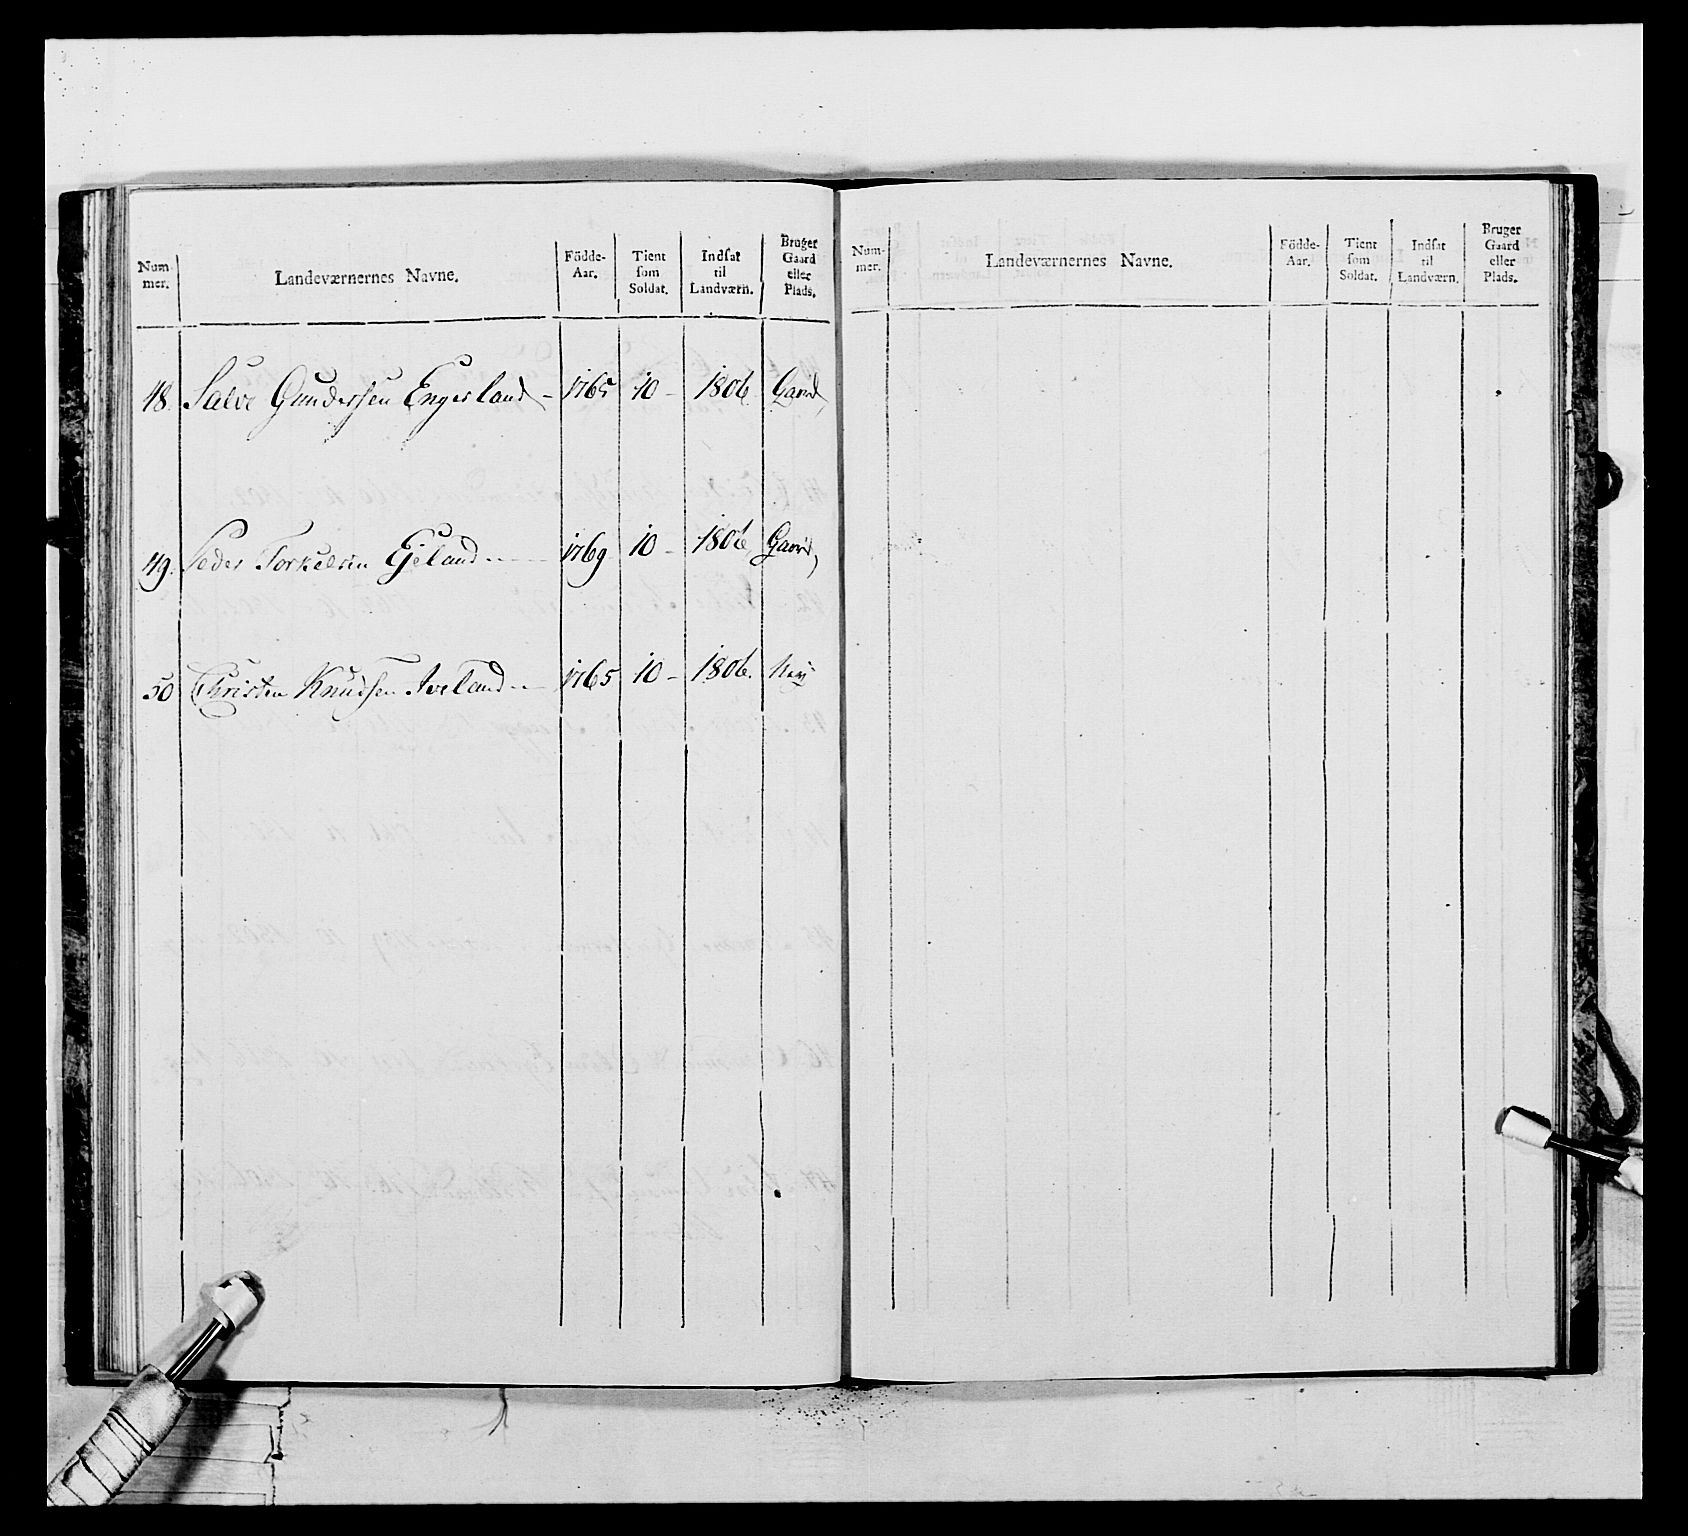 Num-
mer.
Landeværnernes Navne.
Födde-
Aar.
Tient
som
Soldat.
Indsat
til
Landværn.
Bruger
Gaard
eller
Plads.
48. Salve Gundersen Engesland - 1765 10 - 1806 Gaard,
49. Peder Torkelsen Ejeland - 1769 10 - 1806 Gaard,
50 Christen Knudsen Aveland - 1765 10 - 1806. Ney
Num-
mer.
Landeværnernes Navne.
Födde-
Aar.
Tient
som
Soldat.
Indsat
til
Landværn.
Bruger
Gaard
eller
Plads.